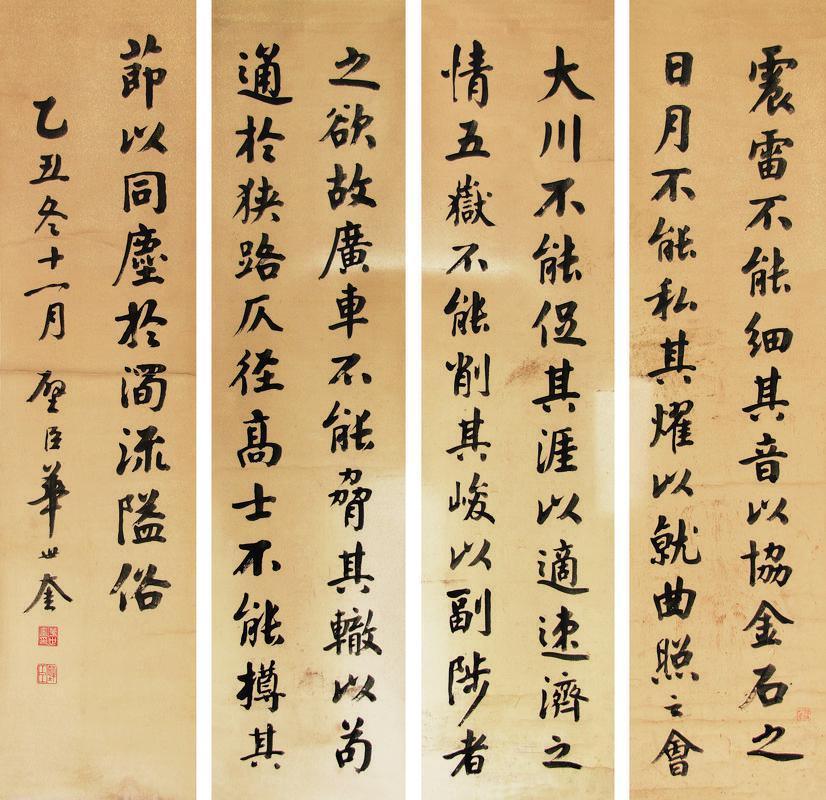 震雷不能細其音以協金石之
日月不能私其耀以就曲照之會
大川不能促其涯以適速濟之
情五嶽不能削其峻以副陟者
之欲故廣車不能脅其轍以苟
通於狹路仄徑高士不能撙其
節以同塵於濁流隘俗
乙丑冬十一月 壁臣華世奎